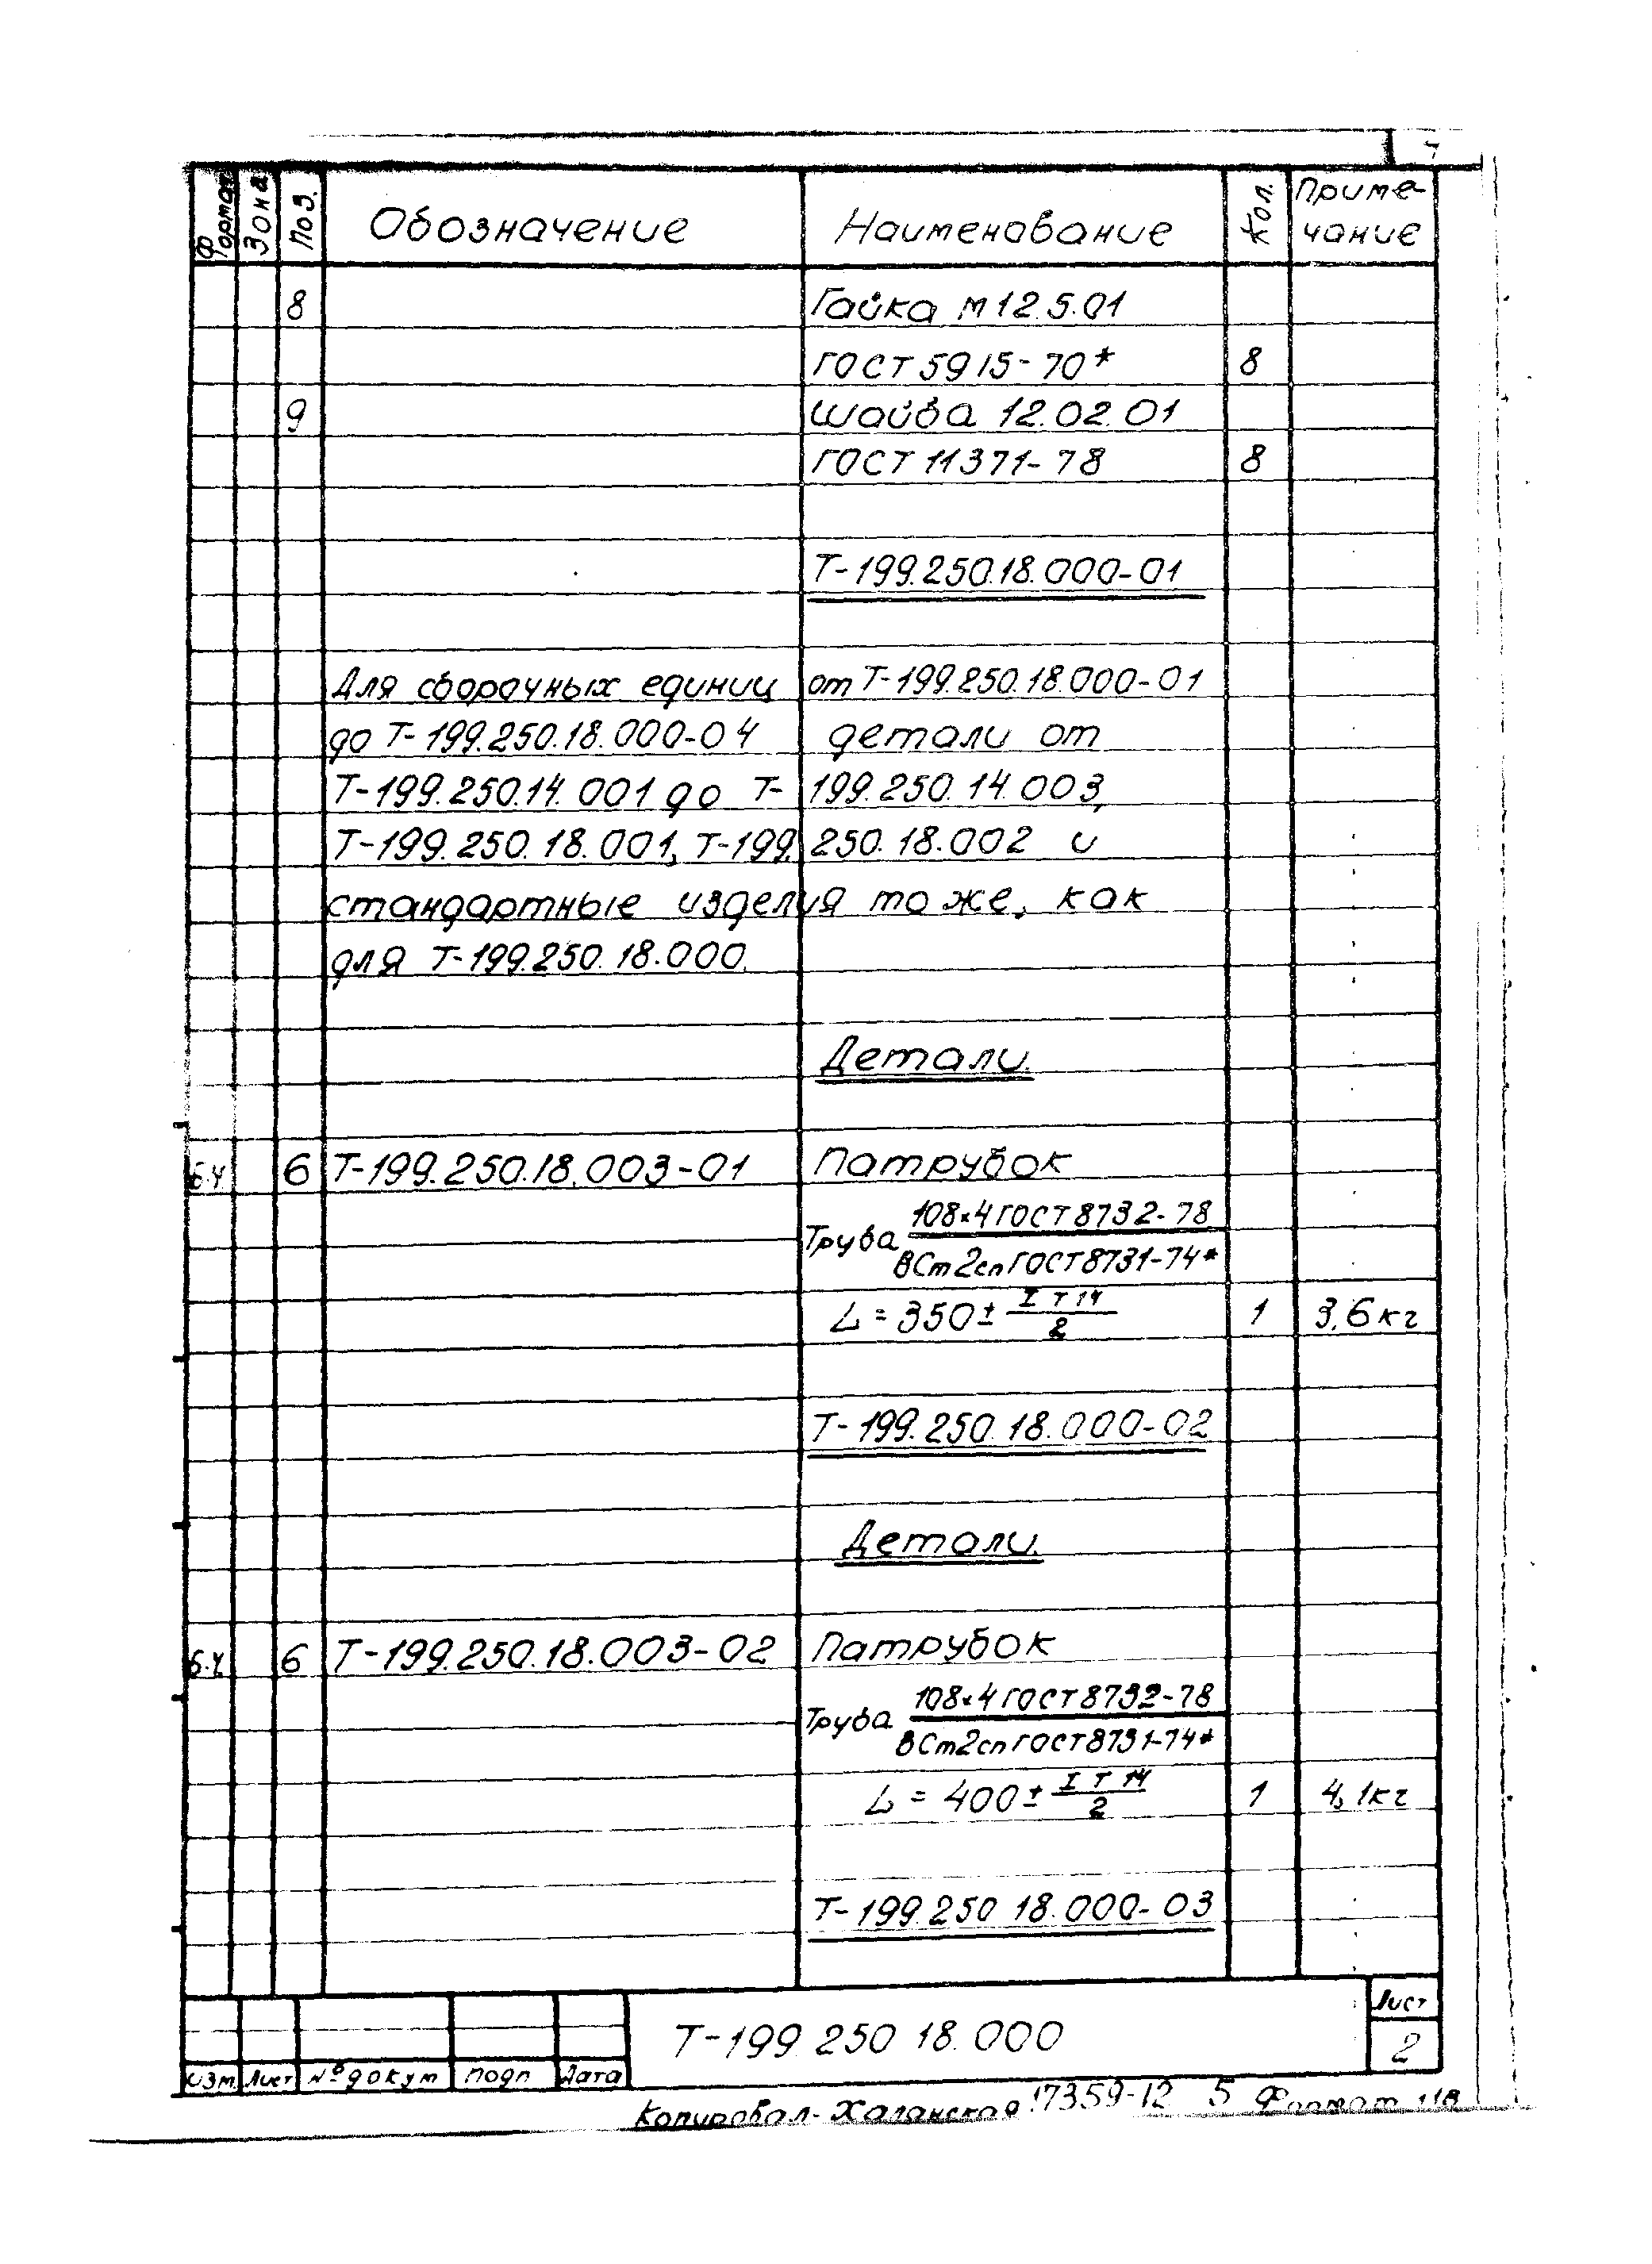 Формат Зона Поз. Обозначение Наименование Кол. Приме-
чание
8 Гайка м12.5.01
ГОСТ 5915-70* 8
9 Шайба 12.02.01
ГОСТ 11371-78 8
Т-199.250.18.000-01
Для сборочных единиц от Т-199.250.18.000-01
до Т-199.250.18.000-04 детали от
Т-199.250.14.001 до Т-199.250.14.003,
Т-199.250.18.001, Т-199.250.18.002 и
стандартные изделия то же, как
для Т-199.250.18.000.
Детали.
б.ч 6 Т-199.250.18.003-01 Патрубок
Труба 108×4 ГОСТ 8732-78
ВСт2сп ГОСТ 8731-74*
L = 350 ± IT14/2 1 3,6кг
Т-199.250.18.000-02
Детали.
б.ч 6 Т-199.250.18.003-02 Патрубок
Труба 108×4 ГОСТ 8732-78
ВСт2сп ГОСТ 8731-74*
L = 400 ± IT14/2 1 4,1кг
Т-199.250 18.000-03
Т-199 250 18.000
Лист
2
Изм. Лист № докум Подп Дата
Копировал- 7359-12 5 Формат